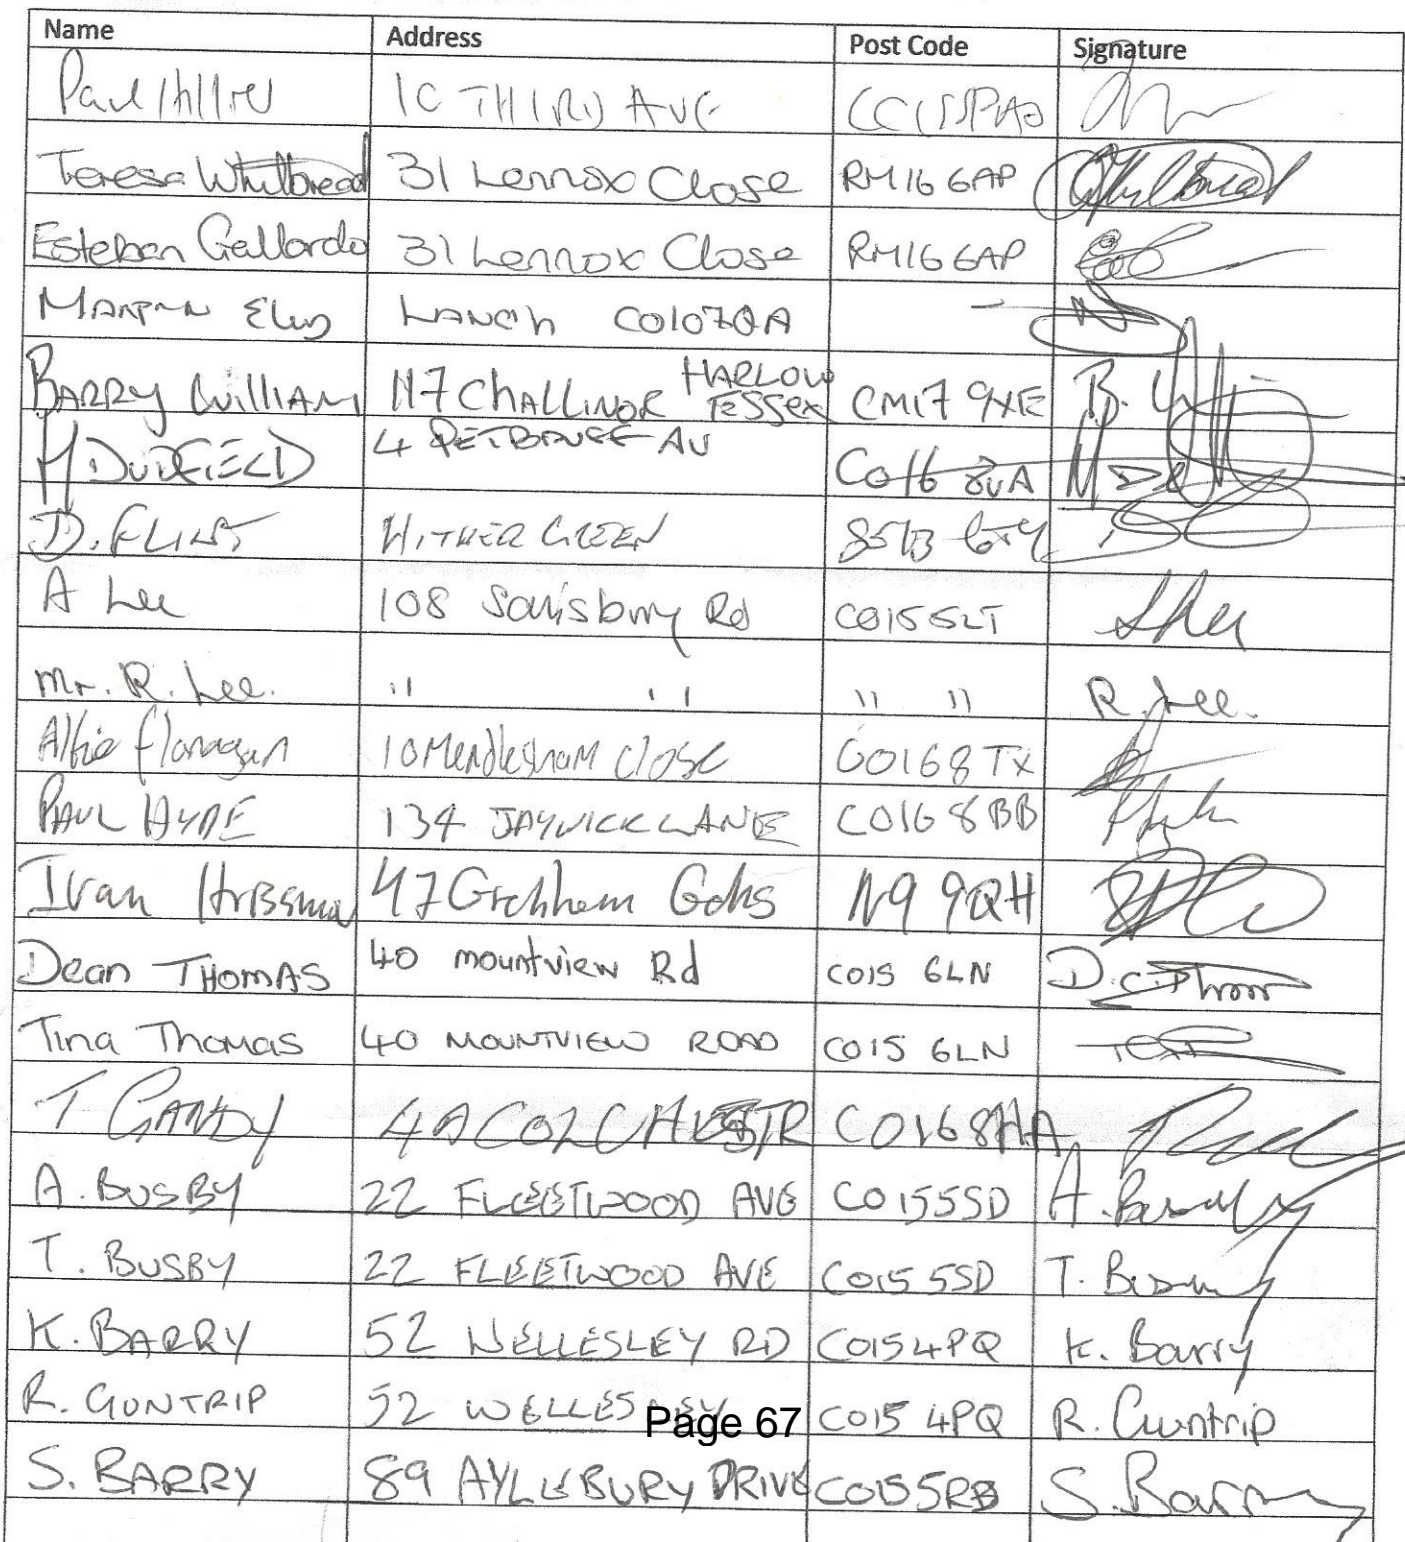 Name Address Post Code Signature
Paul 10 THIRD AVE
Teresa Whitbread 31 Lennox Close RM16 6AP
Esteban Gallardo 31 Lennox Close RM16 6AP
CO107QA
BARRY WILLIAM 117 CHALLINOR HARLOW ESSEX CM17 9XE B.
DUDFIELD 4 AV CO16
D. FLINT HITHER GREEN
A Lee 108 Salisbury Rd CO15 5LT
Mr. R. Lee. " " " " R. Lee.
Alfie Flanagan 10 Mendlesham Close CO168TX
PAUL HYDE 134 JAYWICK LANE CO16 8BB
Ivan 47 Gdns N9 9QH
Dean THOMAS 40 mountview Rd CO15 6LN
Tina Thomas 40 MOUNTVIEW ROAD CO15 6LN
T GANDY 4A CO168HA
A. BUSBY 22 FLEETWOOD AVE CO155SD A. Busby
T. BUSBY 22 FLEETWOOD AVE CO15 5SD T. Busby
K. BARRY 52 WELLESLEY RD CO15 4PQ K. Barry
R. GUNTRIP 52 WELLESLEY CO15 4PQ R. Guntrip
S. BARRY 89 AYLESBURY DRIVE CO155RB S. Barry
Page 67